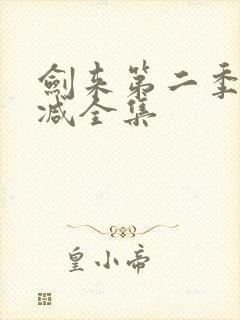 劍来第二季
减全集
皇小帝